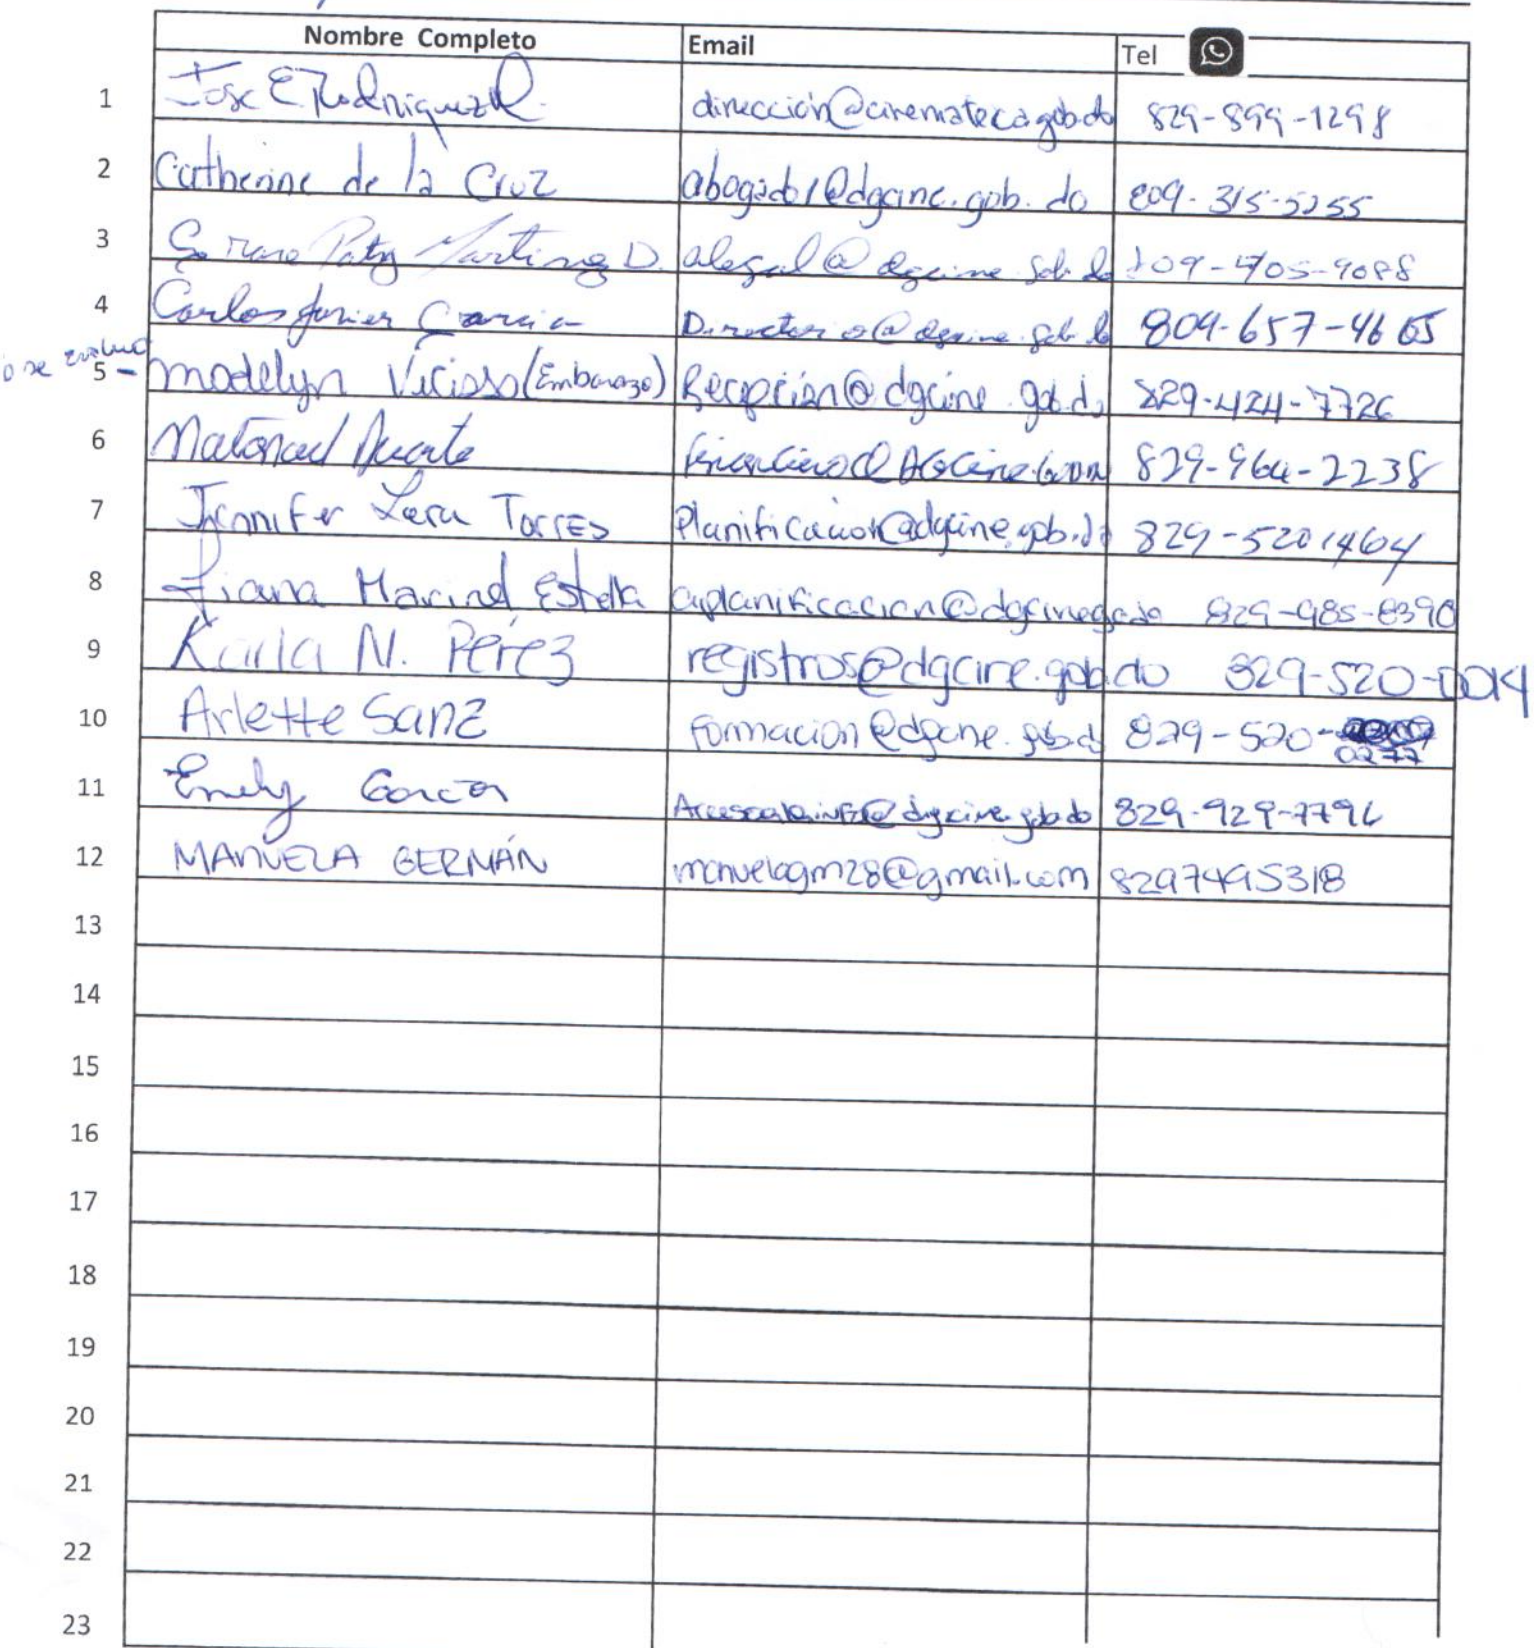 Nombre Completo Email Tel
1 Jose E Rodriguez R. dirección@cinemateca.gob.do 829-899-1298
2 Catherine de la Cruz abogado1@dgcine.gob.do 809-315-5255
3 Patsy Martinez D. alegal@dgcine.gob.do 809-705-9088
4 Carlos Junier Garcia @dgcine.gob.do 809-657-4665
5 - Madelyn Vicioso (Embarazo) Recepción@dgcine.gob.do 829-424-7726
6 Natanael Duarte financiero@ 829-964-2238
7 Jennifer Lara Torres Planificacion@dgcine.gob.do 829-5201464
8 Liana Marinel Estella auplanificacion@ 829-985-8390
9 Karla N. Pérez registros@dgcine.gob.do 829-520-0014
10 Arlette Sanz Formacion@dgcine.gob.d 829-520-0277
11 Emely Garcia @dgcine.gob.do 829-929-7796
12 MANUELA GERMÁN manuelagm28@gmail.com 8297495318
13
14
15
16
17
18
19
20
21
22
23